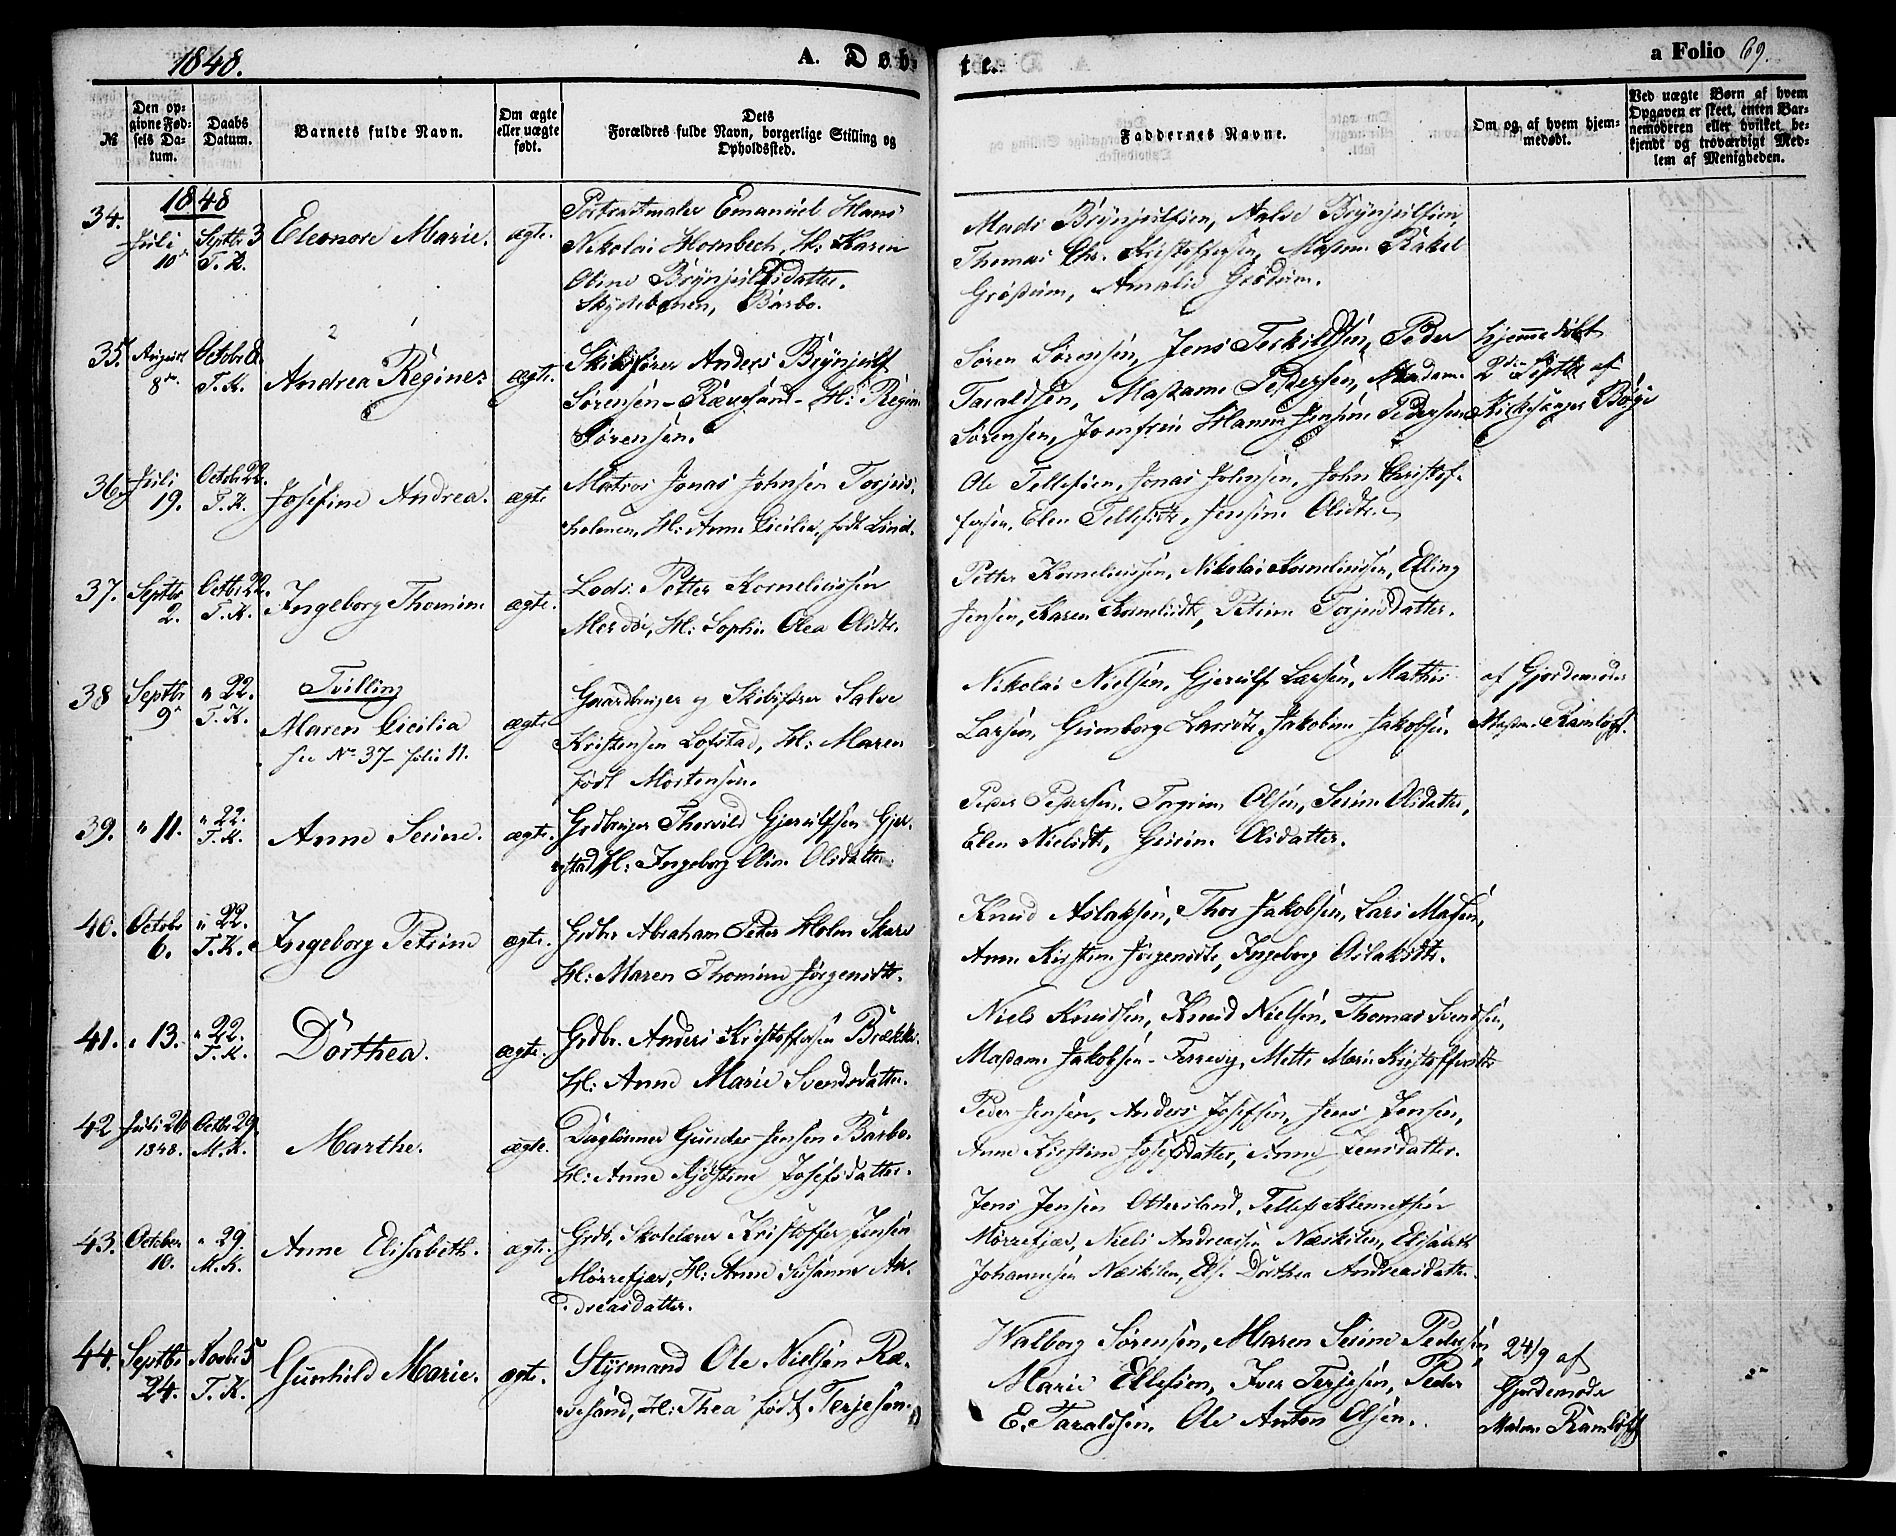 1848.
A. Döb-
te.
a Folio 69.
№
Den op-
givne Fød-
sels Da-
tum.
Daabs
Datum.
Barnets fulde Navn.
Om ægte
eller uægte
født.
Dets
Forældres fulde Navn, borgerlige Stilling og
Opholdssted.
Faddernes Navne.
Om og af hvem hjem-
medøbt.
Ved uægte Børn af hvem
Opgaven er skeet, enten Bar-
nemoderen eller hvilket be-
kjendt og troværdigt Med-
lem af Menigheden.
1848
34. Juli 10de Septbr 3 T. K. Eleonore Marie. ægte.
Portraitmaler Emanuel Hans
Nikolai Hornbech, H: Karen
Oline Brynjulfsdatter.
Skydebanen, Barbo.
Mads Brynjulfsen, Brynjulfsen
Thomas Chr. Kristoffersen, Madam Rakel
Grødum, Amalie Grødum.
35. August 8de. Octobr 8. T. K. Andrea Regine. ægte.
Skibsfører Anders Brynjulf
Sørensen Rævesand H: Regine
Sørensen.
Søren Sørensen, Jens Terkildsen, Peder
Taraldsen, Madame Pedersen, Madam
Sørensen, Jomfrue Hanna Jensine Pedersen
hjemmedøbt
2den Septbr af
Kirkesanger Böge
36. Juli 19. Octobr 22. T. K. Josefine Andrea. ægte
Matros Jonas Johnsen Torjus-
holmen, H: Anne Cicilie, født Lind.
Ole Tellefsen, Jonas Johnsen, John Christof-
fersen, Elen Tellefsdtr, Jensine Olsdtr.
37. Septbr 2. Octbr 22. T. K. Ingeborg Thomine ægte.
Lods Petter Kornelieussen
Merdøe, H: Sophie Olea Olsdtr.
Petter Kornelieussen, Nikolai Kornelieussen, Elling
Jensen, Karen Kornelisdtr, Petrine Torjusdatter.
38 Septbr 9de " 22. T. K. Tvilling
Maren Cicilia
see No 37 folio 11.
ægte
Gaardbruger og Skibsfører Salve
Kristensen Lofstad, H: Maren
født Mortensen.
Nikolai Nielsen, Gjerulf Larsen, Mathis
Larsen, Gunborg Larsdtr, Jakobine Jakobsen.
af Gjordemoder
Madam Ramløfft.
39. " 11. " 22. T. K. Anne Serine. ægte.
Grdbruger Thorvild Gjerulfsen Gjer-
stad H: Ingeborg Oline Olsdatter.
Peder Pedersen, Torgrim Olsen, Serine Olsdatter,
Elen Nielsdtr, Olsdatter.
40. Octobr 6. " 22. T. K. Ingeborg Petrine ægte.
Grdbr Abraham Peter Holm Skare
H: Maren Thomine Jørgensdtr.
Knud Aslaksen, Thor Jakobsen, Lars Madsen,
Anne Kirstine Jørgensdtr, Ingeborg Aslaksdtr.
41. " 13. " 22. T. K. Dorthea. ægte.
Grdbr. Anders Kristoffersen Brække.
H: Anne Marie Svendsdatter.
Niels Knudsen, Knud Nielsen, Thomas Svendsen,
Madam Jakobsen Mette Marie Kristoffersdtr
42 Juli 26 1848. Octbr 29. M. K. Marthe. ægte.
Daglønner Gunder Jensen Barbo.
H: Anne Kjøstine Josefsdatter.
Peder Jensen, Anders Josefsen, Jens Jensen,
Anne Kirstine Josefsdatter, Anne Jensdatter.
43. October 10. " 29. M. K. Anne Elisabeth. ægte.
Grdb, Skolelærer Kristoffer Jensen
Mørrefjær, H: Anne Susanne An-
dreasdatter.
Jens Jensen Otterstland, Tellef Klemetsen
Mørrefjær, Niels Andreassen Næskilen, Elisabeth
Johannesen Næskilen, Else Dorthea Andreasdatter.
44. Septbr 24. Novbr 5 T. K. Gunhild Marie. ægte.
Styrmand Ole Nielsen Ræ-
vesand, H: Thea født Terjesen.
Walborg Sørensen, Maren Serine Pedersen,
Marie Ellefsen, Iver Terjesen, Peder
E. Taraldsen, Ole Anton Olsen.
24/9 af
Gjordemoder
Madam Ramløfft